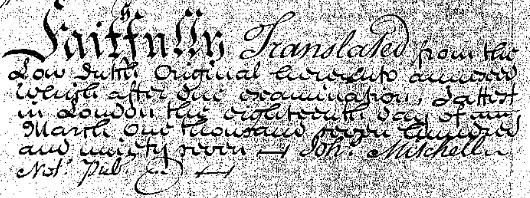 Faithfully Translated from the
Low Dutch Original hereunto annexed
Which after due examination, I attest
in London this eighteenth day of
March One thousand seven hundred
and ninety seven Joh: Mitchell
Not: Pub: